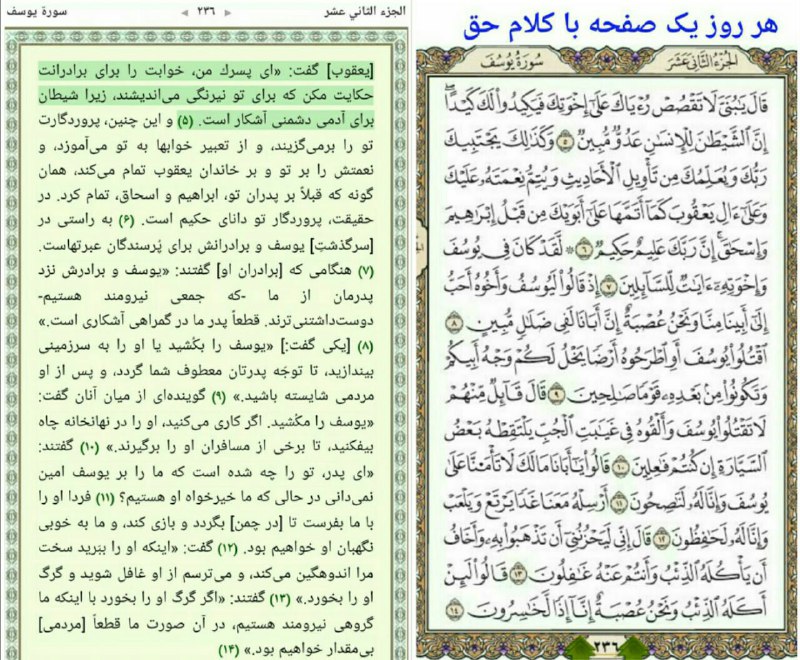 هر روز یک صفحه با کلام حق
الجُزءُ الثَّانِی عَشَرَ
سُورَةُ یُوسُفَ
قَالَ يَٰبُنَىَّ لَا تَقۡصُصۡ رُءۡيَاكَ عَلَىٰٓ إِخۡوَتِكَ فَيَكِيدُواْ لَكَ كَيۡدًاۖ
إِنَّ ٱلشَّيۡطَٰنَ لِلۡإِنسَٰنِ عَدُوّٞ مُّبِينٞ ۵ وَكَذَٰلِكَ يَجۡتَبِيكَ
رَبُّكَ وَيُعَلِّمُكَ مِن تَأۡوِيلِ ٱلۡأَحَادِيثِ وَيُتِمُّ نِعۡمَتَهُۥ عَلَيۡكَ
وَعَلَىٰٓ ءَالِ يَعۡقُوبَ كَمَآ أَتَمَّهَا عَلَىٰٓ أَبَوَيۡكَ مِن قَبۡلُ إِبۡرَٰهِيمَ
وَإِسۡحَٰقَۚ إِنَّ رَبَّكَ عَلِيمٌ حَكِيمٞ ۶ ۞ لَّقَدۡ كَانَ فِي يُوسُفَ
وَإِخۡوَتِهِۦٓ ءَايَٰتٞ لِّلسَّآئِلِينَ ۷ إِذۡ قَالُواْ لَيُوسُفُ وَأَخُوهُ أَحَبُّ
إِلَىٰٓ أَبِينَا مِنَّا وَنَحۡنُ عُصۡبَةٌ إِنَّ أَبَانَا لَفِي ضَلَٰلٖ مُّبِينٍ ۸
ٱقۡتُلُواْ يُوسُفَ أَوِ ٱطۡرَحُوهُ أَرۡضٗا يَخۡلُ لَكُمۡ وَجۡهُ أَبِيكُمۡ
وَتَكُونُواْ مِنۢ بَعۡدِهِۦ قَوۡمٗا صَٰلِحِينَ ۹ قَالَ قَآئِلٞ مِّنۡهُمۡ
لَا تَقۡتُلُواْ يُوسُفَ وَأَلۡقُوهُ فِي غَيَٰبَتِ ٱلۡجُبِّ يَلۡتَقِطۡهُ بَعۡضُ
ٱلسَّيَّارَةِ إِن كُنتُمۡ فَٰعِلِينَ ۱۰ قَالُواْ يَٰٓأَبَانَا مَا لَكَ لَا تَأۡمَ۬نَّا عَلَىٰ
يُوسُفَ وَإِنَّا لَهُۥ لَنَٰصِحُونَ ۱۱ أَرۡسِلۡهُ مَعَنَا غَدٗا يَرۡتَعۡ وَيَلۡعَبۡ
وَإِنَّا لَهُۥ لَحَٰفِظُونَ ۱۲ قَالَ إِنِّي لَيَحۡزُنُنِيٓ أَن تَذۡهَبُواْ بِهِۦ وَأَخَافُ
أَن يَأۡكُلَهُ ٱلذِّئۡبُ وَأَنتُمۡ عَنۡهُ غَٰفِلُونَ ۱۳ قَالُواْ لَئِنۡ
أَكَلَهُ ٱلذِّئۡبُ وَنَحۡنُ عُصۡبَةٌ إِنَّآ إِذٗا لَّخَٰسِرُونَ ۱۴
۲۳۶
الجزء الثاني عشر
۲۳۶
سورة يوسف
[یعقوب] گفت: «ای پسرك من، خوابت را برای برادرانت
حکایت مکن که برای تو نیرنگی می‌اندیشند، زیرا شیطان
برای آدمی دشمنی آشکار است. (۵) و این چنین، پروردگارت
تو را برمی‌گزیند، و از تعبیر خوابها به تو می‌آموزد، و
نعمتش را بر تو و بر خاندان یعقوب تمام می‌کند، همان
گونه که قبلاً بر پدران تو، ابراهیم و اسحاق، تمام کرد. در
حقیقت، پروردگار تو دانای حکیم است. (۶) به راستی در
[سرگذشتِ] یوسف و برادرانش برای پُرسندگان عبرتهاست.
(۷) هنگامی که [برادران او] گفتند: «یوسف و برادرش نزد
پدرمان از ما -که جمعی نیرومند هستیم-
دوست‌داشتنی‌ترند. قطعاً پدر ما در گمراهی آشکاری است.»
(۸) [یکی گفت:] «یوسف را بکُشید یا او را به سرزمینی
بیندازید، تا توجّه پدرتان معطوف شما گردد، و پس از او
مردمی شایسته باشید.» (۹) گوینده‌ای از میان آنان گفت:
«یوسف را مکُشید. اگر کاری می‌کنید، او را در نهانخانه چاه
بیفکنید، تا برخی از مسافران او را برگیرند.» (۱۰) گفتند:
«ای پدر، تو را چه شده است که ما را بر یوسف امین
نمی‌دانی در حالی که ما خیرخواه او هستیم؟ (۱۱) فردا او را
با ما بفرست تا [در چمن] بگردد و بازی کند، و ما به خوبی
نگهبان او خواهیم بود. (۱۲) گفت: «اینکه او را ببَرید سخت
مرا اندوهگین می‌کند، و می‌ترسم از او غافل شوید و گرگ
او را بخورد.» (۱۳) گفتند: «اگر گرگ او را بخورد با اینکه ما
گروهی نیرومند هستیم، در آن صورت ما قطعاً [مردمی]
بی‌مقدار خواهیم بود.» (۱۴)